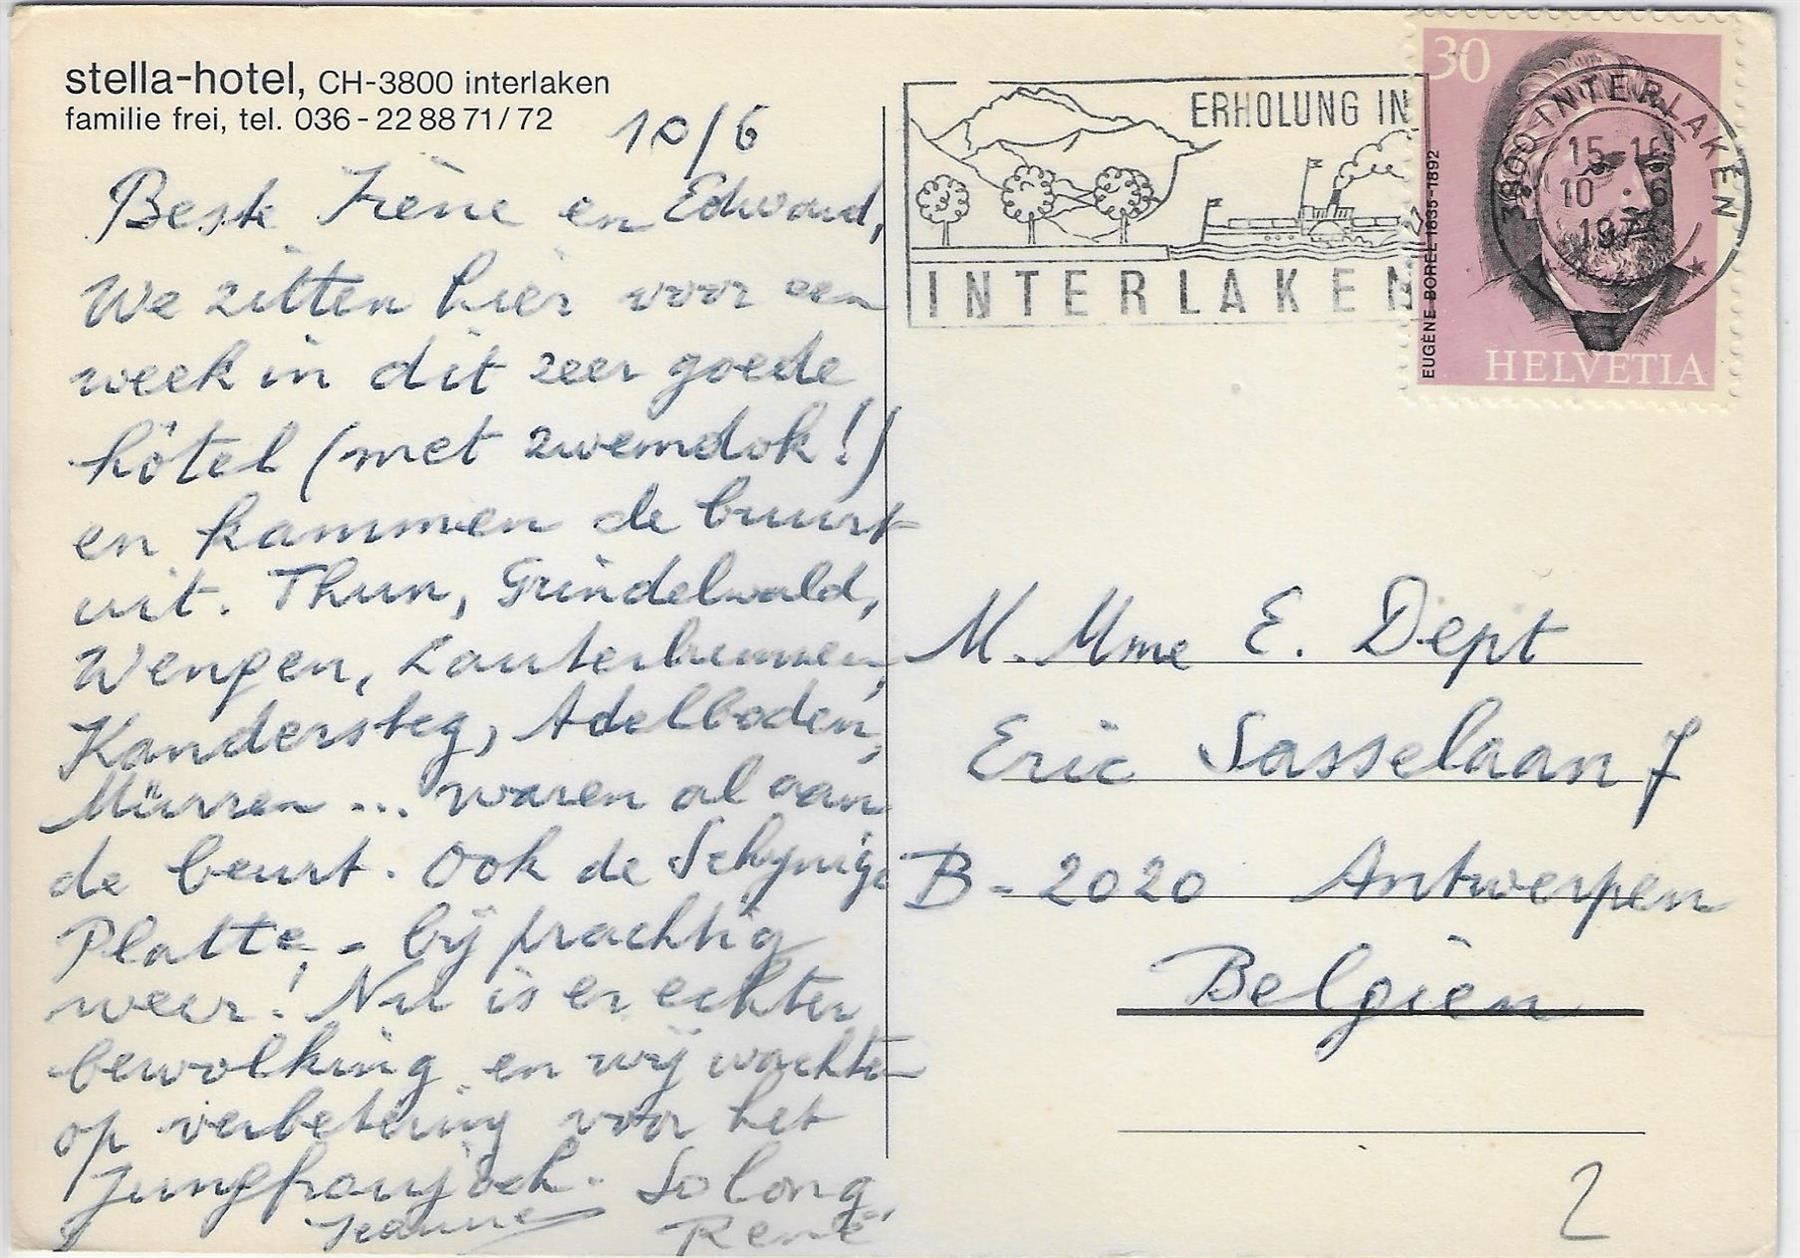 stella-hotel, CH-3800 interlaken
familie frei, tel. 036-22 88 71/72
10/6
Beste Irène en Edward,
We zitten hier voor een
week in dit zeer goede
hôtel (met zwemdok!)
en kammen de buurt
uit. Thun, Grindelwald,
Wengen, Lauterbrunnen,
Kandersteg, Adelboden,
Mürren ... waren al aan
de beurt. Ook de Schynige
Platte, - bij prachtig
weer! Nu is er echter
bewolking en wij wachten
op verbetering voor het
Jungfraujoch. So long,
Jeanne René
ERHOLUNG IN
INTERLAKEN
30
EUGÈNE BOREL 1835-1892
HELVETIA
3800 INTERLAKEN
15-16
10 6
197
M. Mme E. Dept
Eric Sasselaan 7
B-2020 Antwerpen
Belgiën
2